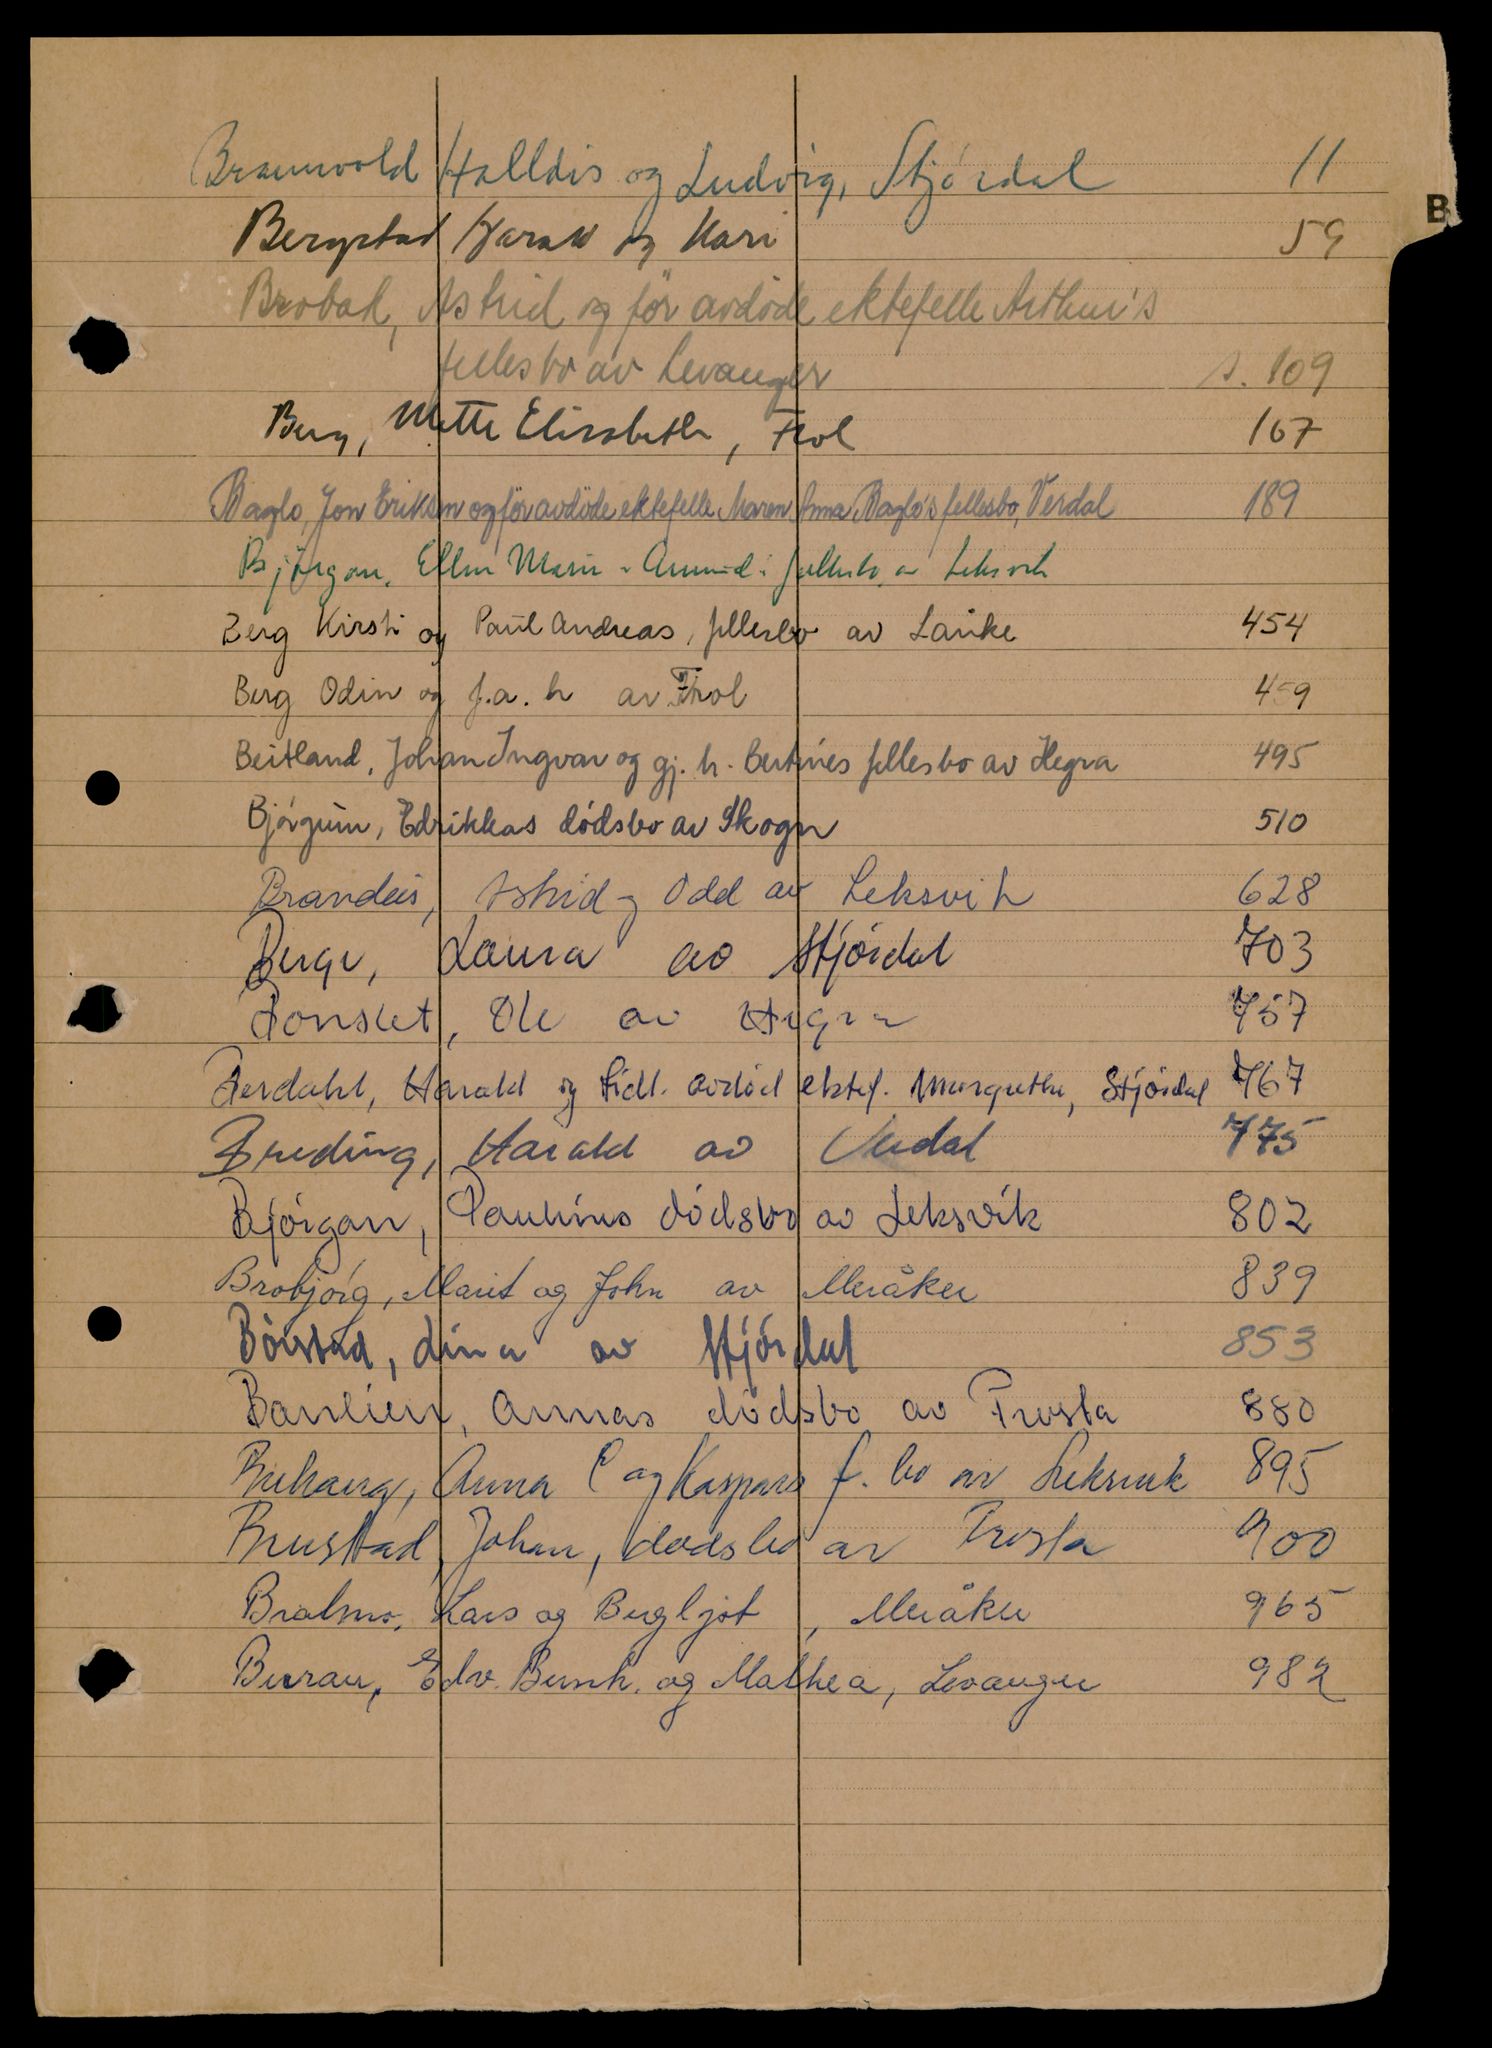 Braunvold Halldis og Ludvig, Stjórdal 11
B
Bergstad Harald og Kari 59
Brobak, Astrid og för avdöde ektefelle Arthur's
fellesbo av Levanger s. 109
Berg, Mette Elisabeth, Frol 167
Baglo, Jon Eriksen og för avdöde ektefelle Maren Anna Baglo's fellesbo, Verdal 189
Bjórgan, Ellen Marie fellesbo, av Leksvik
Berg Kirsti og Paul Andreas, fellesbo av Lånke 454
Berg Odin og f.a.h av Frol 459
Beitland, Johan Ingvar og gj. h. Bertines fellesbo av Hegra 495
Bjórgum, Edrikkas dódsbo av Skogn 510
Brandeis, Astrid og Odd av Leksvik 628
Berge, Laura av Stjórdal 703
Bonslet, Ole av Hegra 757
Berdahl, Harald og tidl. avdód ektef. Margrethe, Stjórdal 767
Breding, Harald av Verdal 775
Bjórgan, Paulines dódsbo av Leksvik 802
Brobjórg, Marit og John av Meråker 839
Bórstad, Lina av Stjórdal 853
Banlien, Annas dódsbo av Frosta 880
Buhaug, Anna E og Kaspars f. bo av Leksvik 895
Brustad, Johan, dødsbo av Frosta 900
Bralmo, Lars og Bergljot, Meråker 965
Buran, Edv. Bernh. og Mathea, Levanger 982